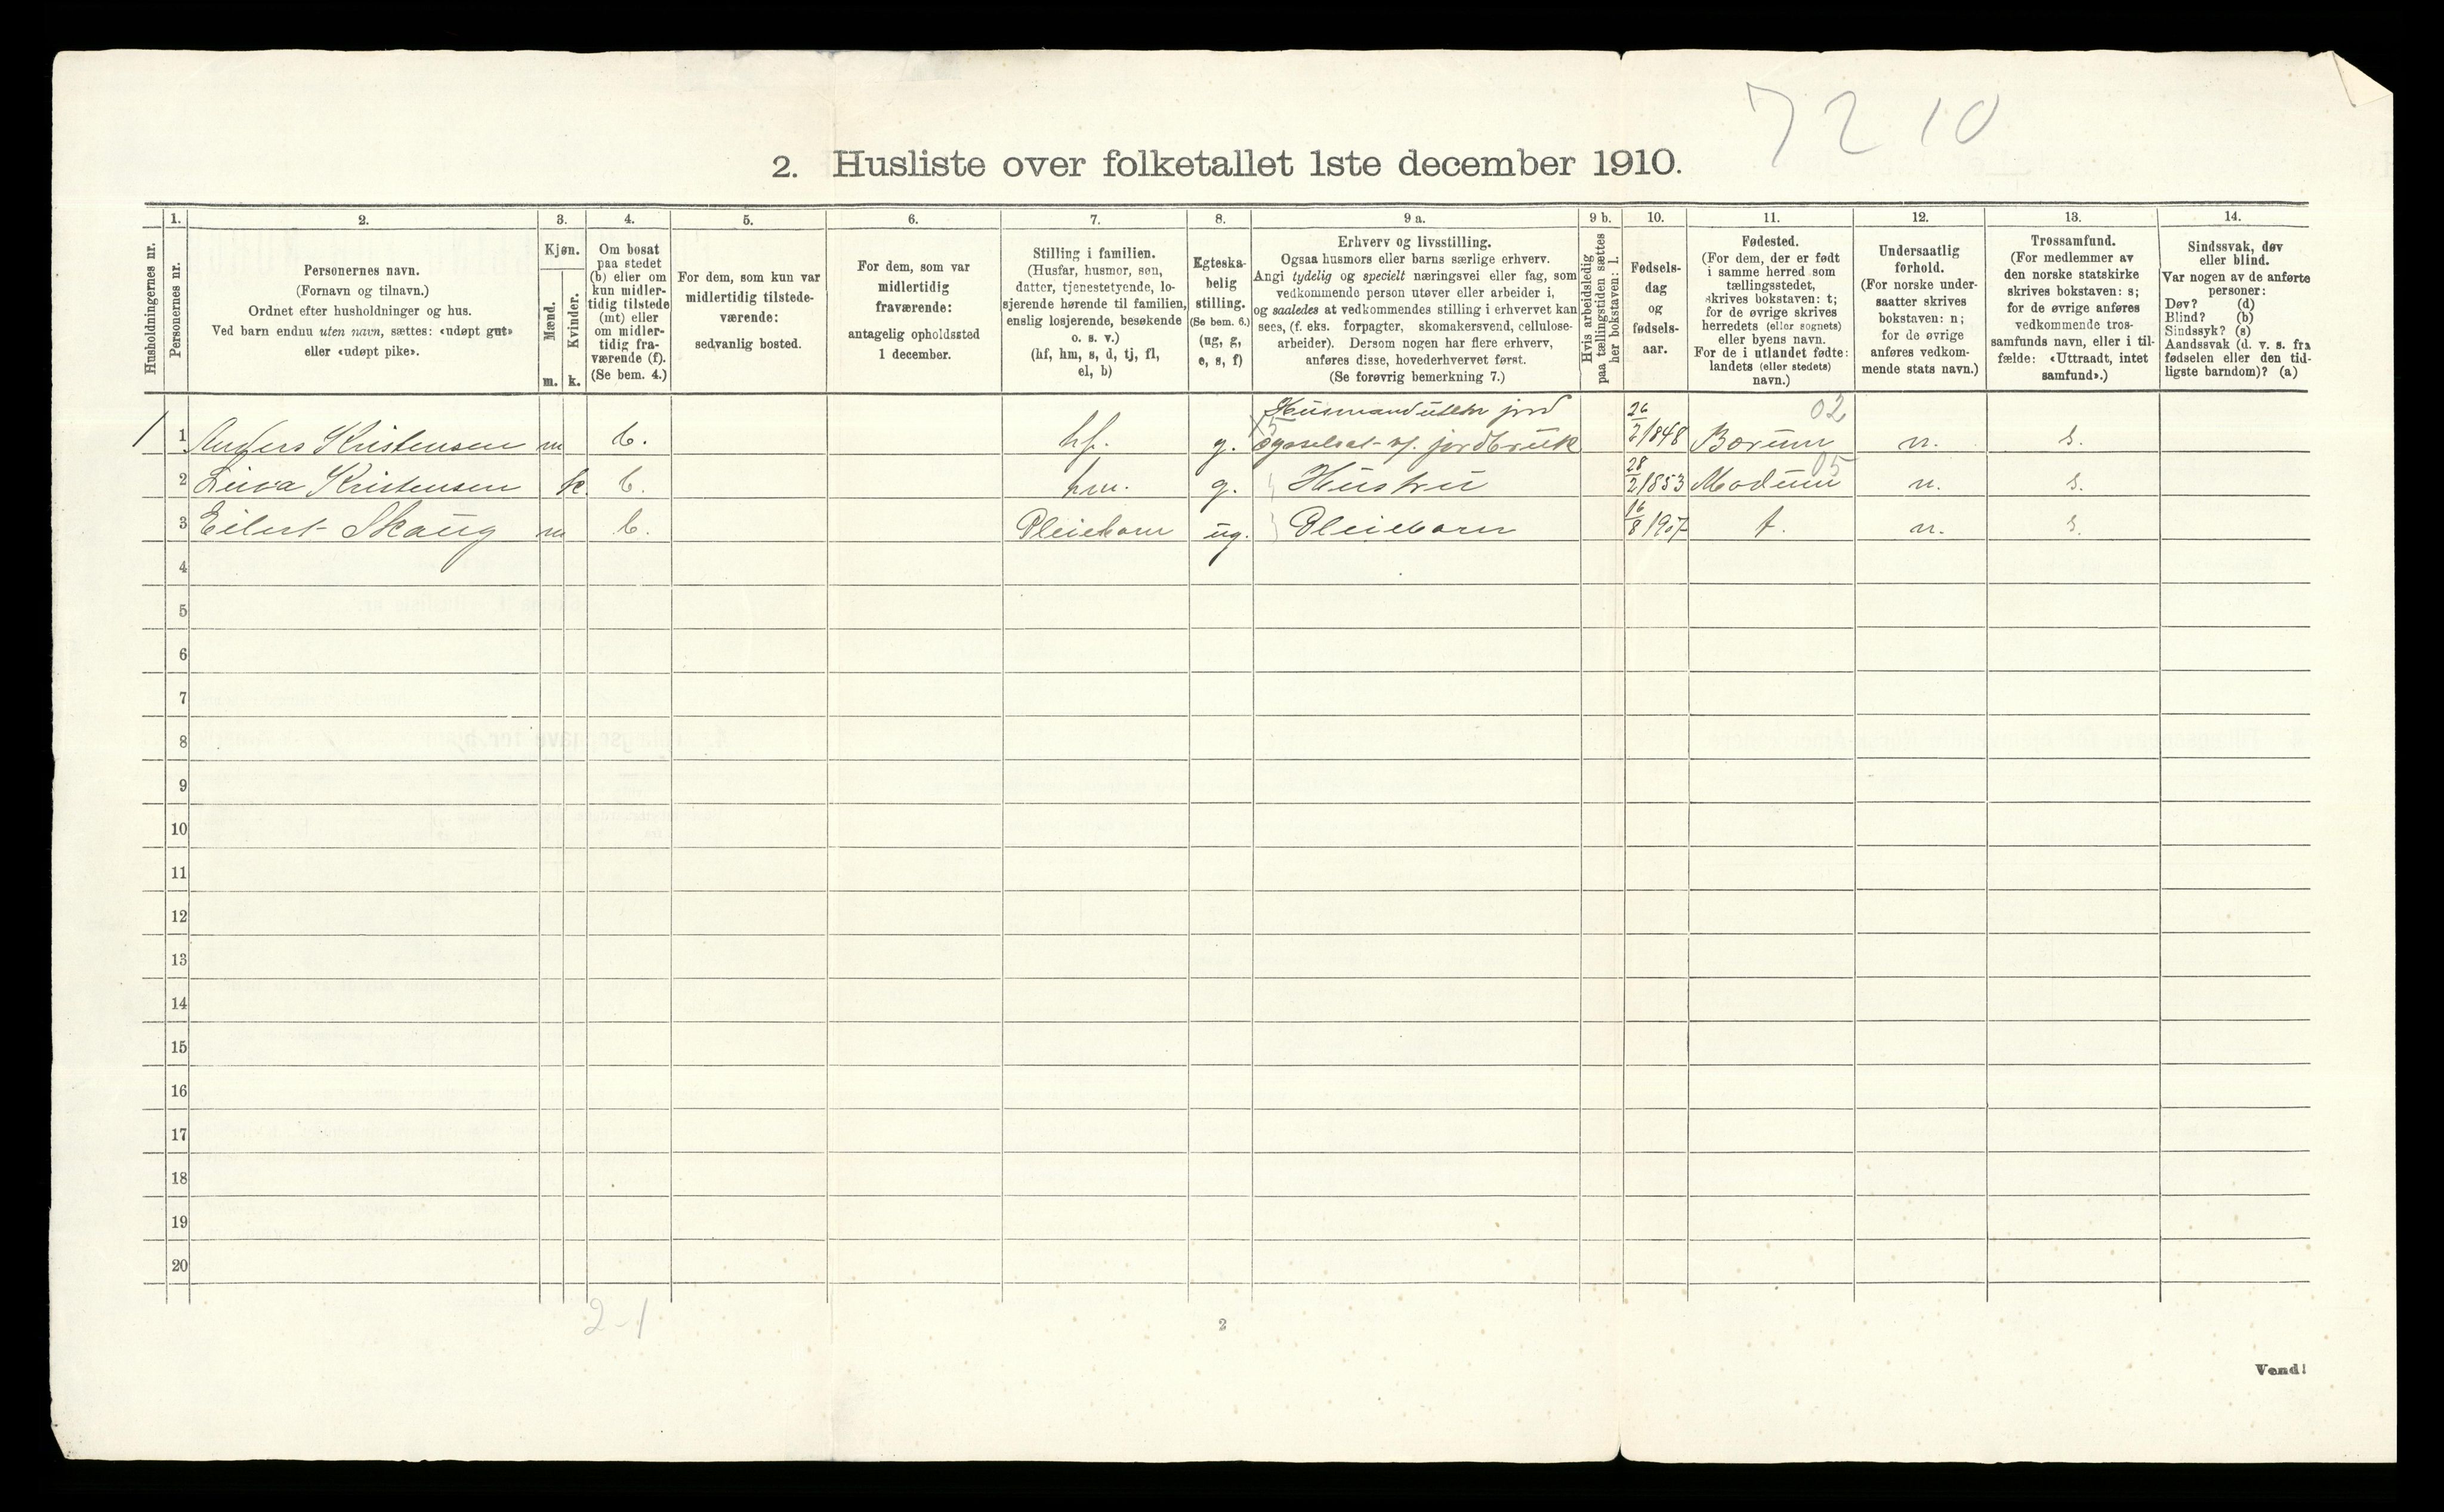 7210
2. Husliste over folketallet 1ste december 1910.
Husholdningernes nr.
1.
Personernes nr.
2.
Personernes navn.
(Fornavn og tilnavn.)
Ordnet efter husholdninger og hus.
Ved barn endnu uten navn, sættes: «udøpt gut»
eller «udøpt pike».
3.
Kjøn.
Mænd.
m.
Kvinder.
k.
4.
Om bosat
paa stedet
(b) eller om
kun midler-
tidig tilstede
(mt) eller
om midler-
tidig fra-
værende (f).
(Se bem. 4.)
5.
For dem, som kun var
midlertidig tilstede-
værende:
sedvanlig bosted.
6.
For dem, som var
midlertidig
fraværende:
antagelig opholdssted
1 december.
7.
Stilling i familien.
(Husfar, husmor, søn,
datter, tjenestetyende, lo-
sjerende hørende til familien,
enslig losjerende, besøkende
o. s. v.)
(hf, hm, s, d, tj, fl,
el, b)
8.
Egteska-
belig
stilling.
(Se bem. 6.)
(ug, g,
e, s, f)
9 a.
Erhverv og livsstilling.
Ogsaa husmors eller barns særlige erhverv.
Angi tydelig og specielt næringsvei eller fag, som
vedkommende person utøver eller arbeider i,
og saaledes at vedkommendes stilling i erhvervet kan
sees, (f. eks. forpagter, skomakersvend, cellulose-
arbeider). Dersom nogen har flere erhverv,
anføres disse, hovederhvervet først.
(Se forøvrig bemerkning 7.)
9 b.
Hvis arbeidsledig
paa tællingstiden sættes
her bokstaven: l.
10.
Fødsels-
dag
og
fødsels-
aar.
11.
Fødested.
(For dem, der er født
i samme herred som
tællingsstedet,
skrives bokstaven: t;
for de øvrige skrives
herredets (eller sognets)
eller byens navn.
For de i utlandet fødte:
landets (eller stedets)
navn.)
12.
Undersaatlig
forhold.
(For norske under-
saatter skrives
bokstaven: n;
for de øvrige
anføres vedkom-
mende stats navn.)
13.
Trossamfund.
(For medlemmer av
den norske statskirke
skrives bokstaven: s;
for de øvrige anføres
vedkommende tros-
samfunds navn, eller i til-
fælde: «Uttraadt, intet
samfund».)
14.
Sindssvak, døv
eller blind.
Var nogen av de anførte
personer:
Døv? (d)
Blind? (b)
Sindssyk? (s)
Aandssvak (d. v. s. fra
fødselen eller den tid-
ligste barndom)? (a)
Husmand uten jord 02
1 1 Anders Kristensen m b. hf. g. jordbruk 26/2 1848 Borum n. s.
05
2 Kristensen k. b. hm. g. Hustru 28/2 1853 Modum n. s.
3 Eilert Skaug m b. Pleiebarn ug. Pleiebarn 16/8 1907 t. n. s.
4
5
6
7
8
9
10
11
12
13
14
15
16
17
18
19
20
2-1
2
Vend!